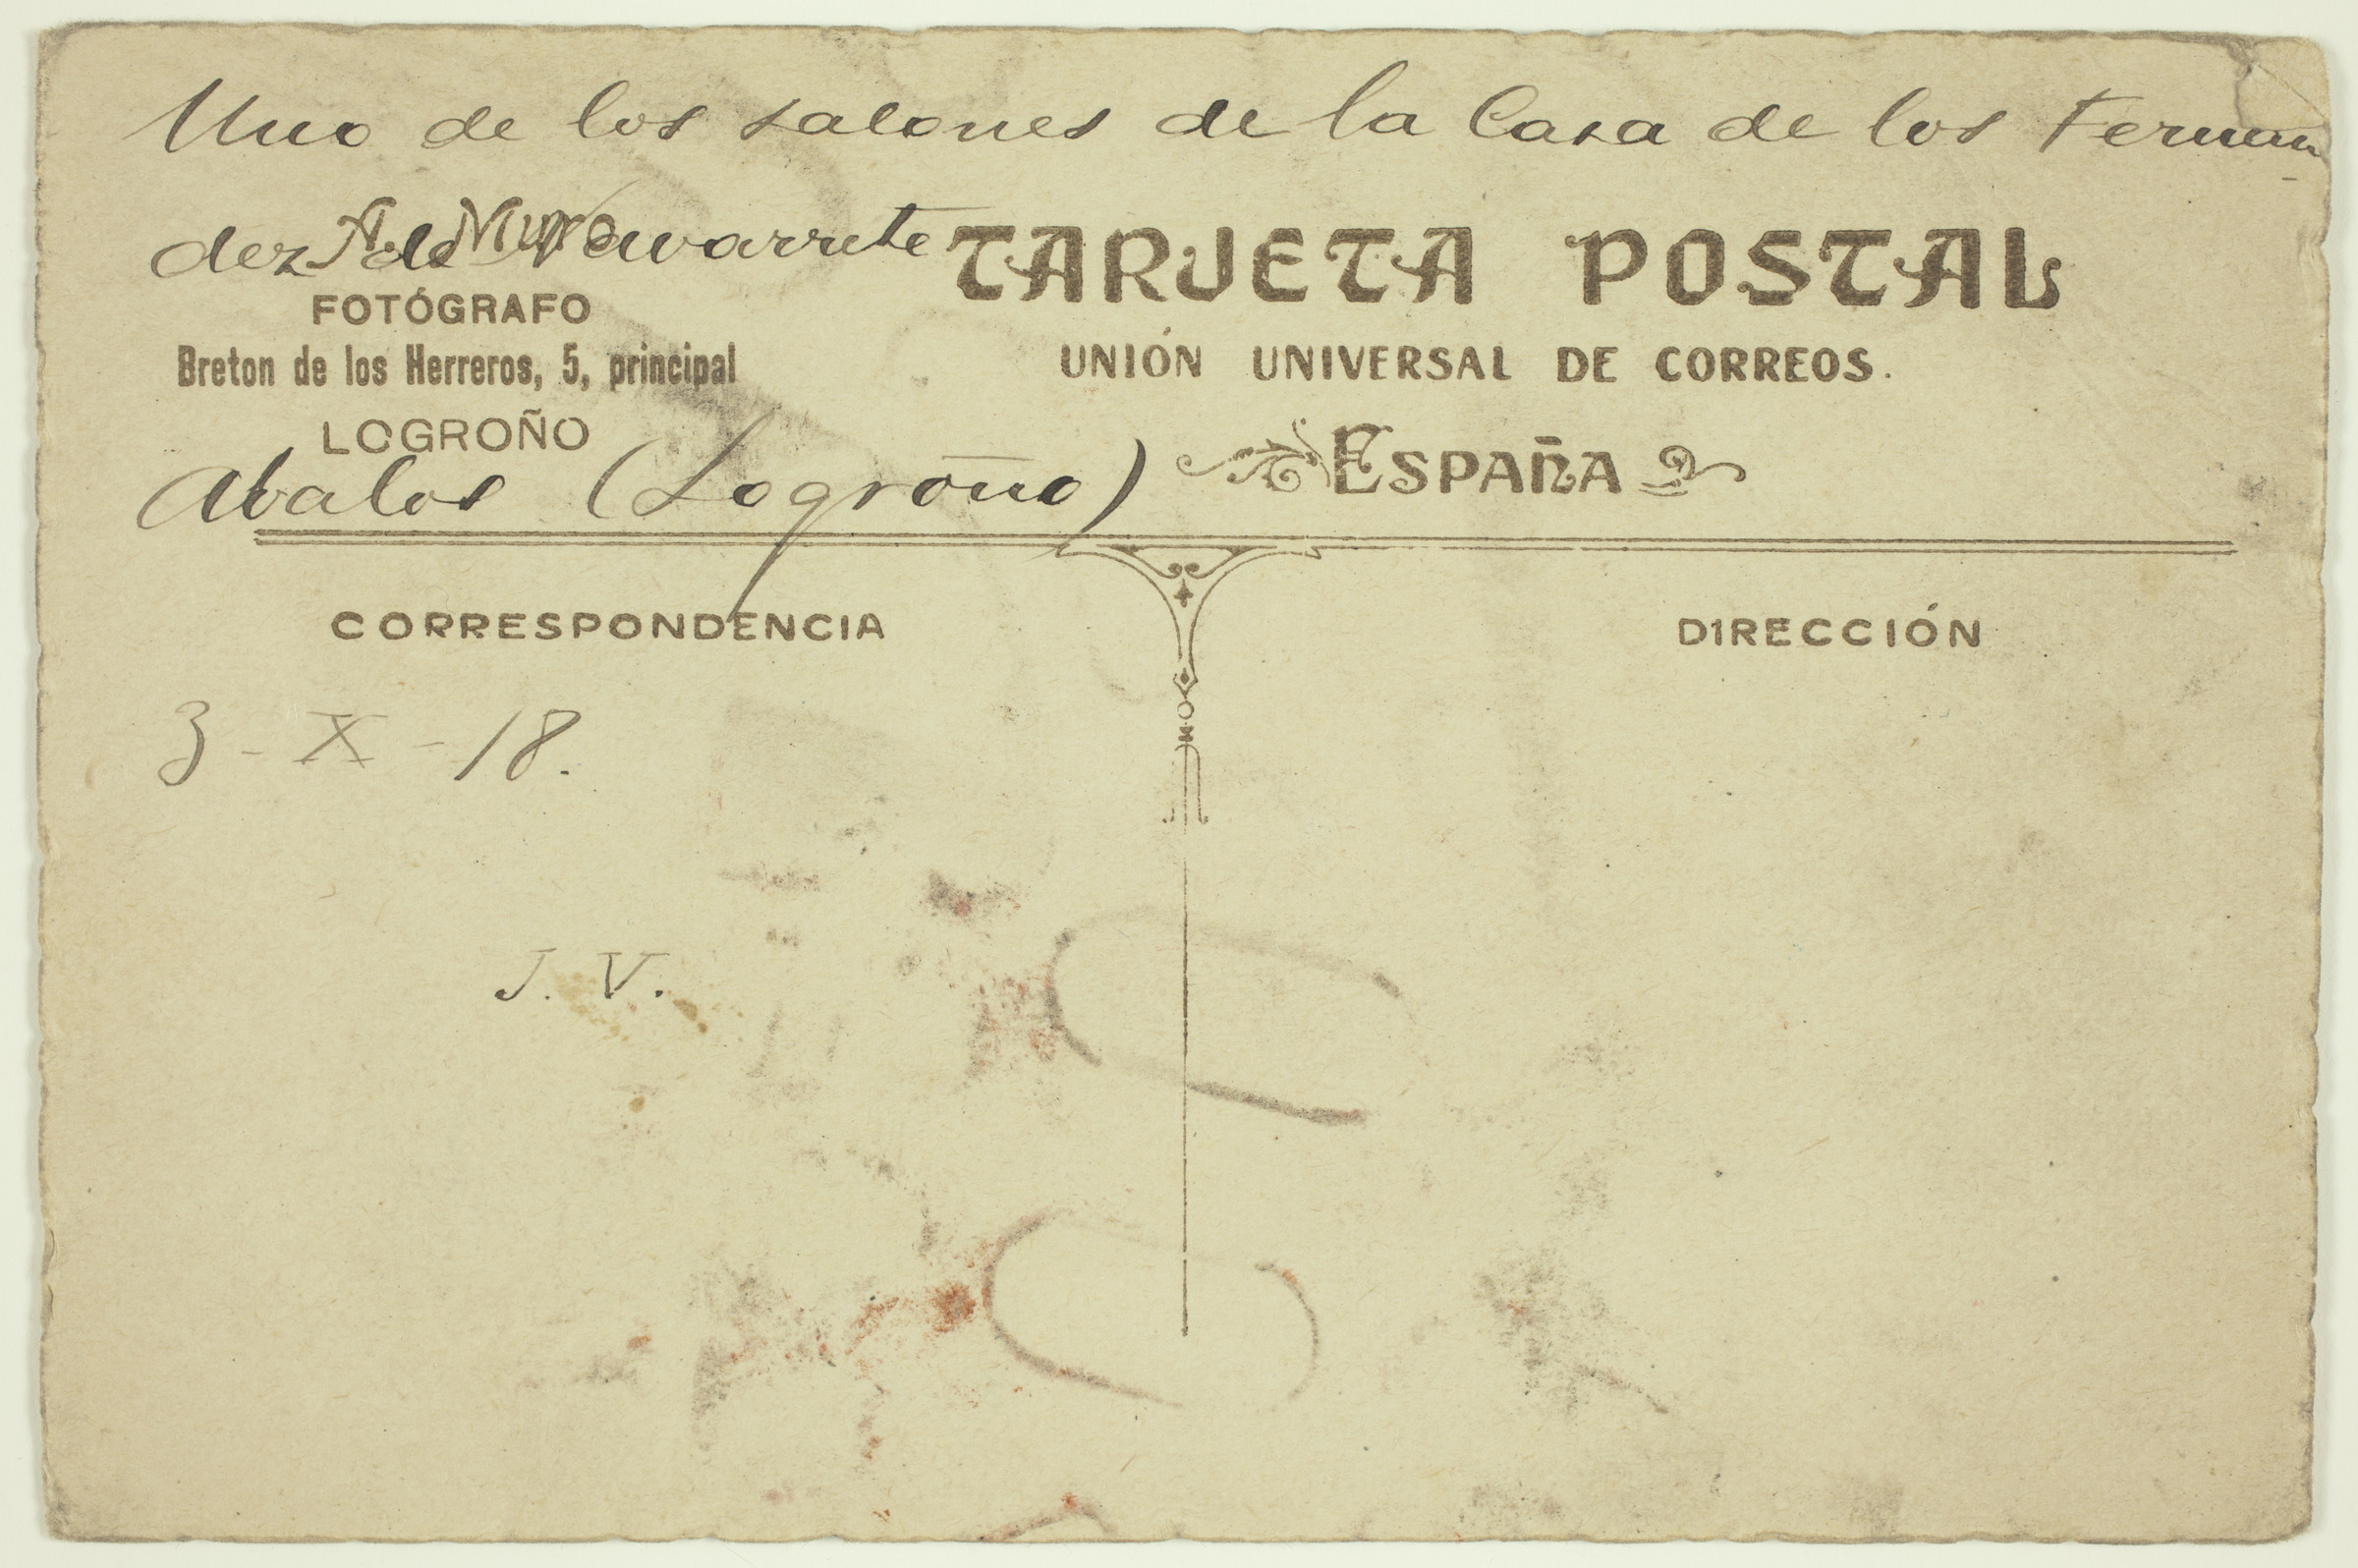 Uno de los salones de la Casa de los Fernan-
dez de Navarrete
TARJETA POSTAL
FOTÓGRAFO
Breton de los Herreros, 5, principal
UNIÓN UNIVERSAL DE CORREOS.
LOGROÑO
ESPAÑA
Abalos (Logroño)
CORRESPONDENCIA
DIRECCIÓN
3 - X - 18.
J. V.